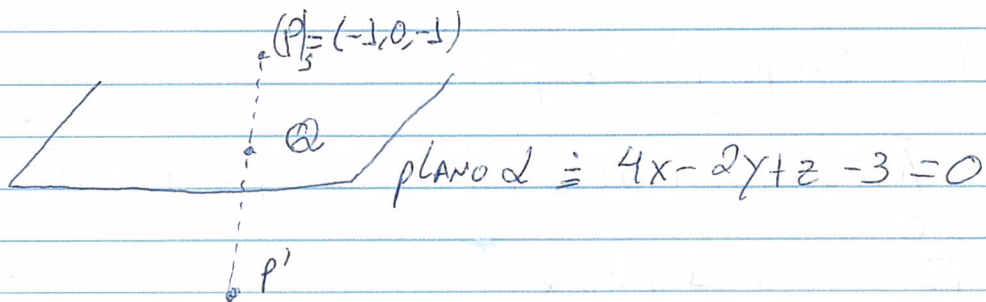 (P)_S = (-1,0,-1)
Q
PLANO α ≐ 4x - 2y + z - 3 = 0
P'